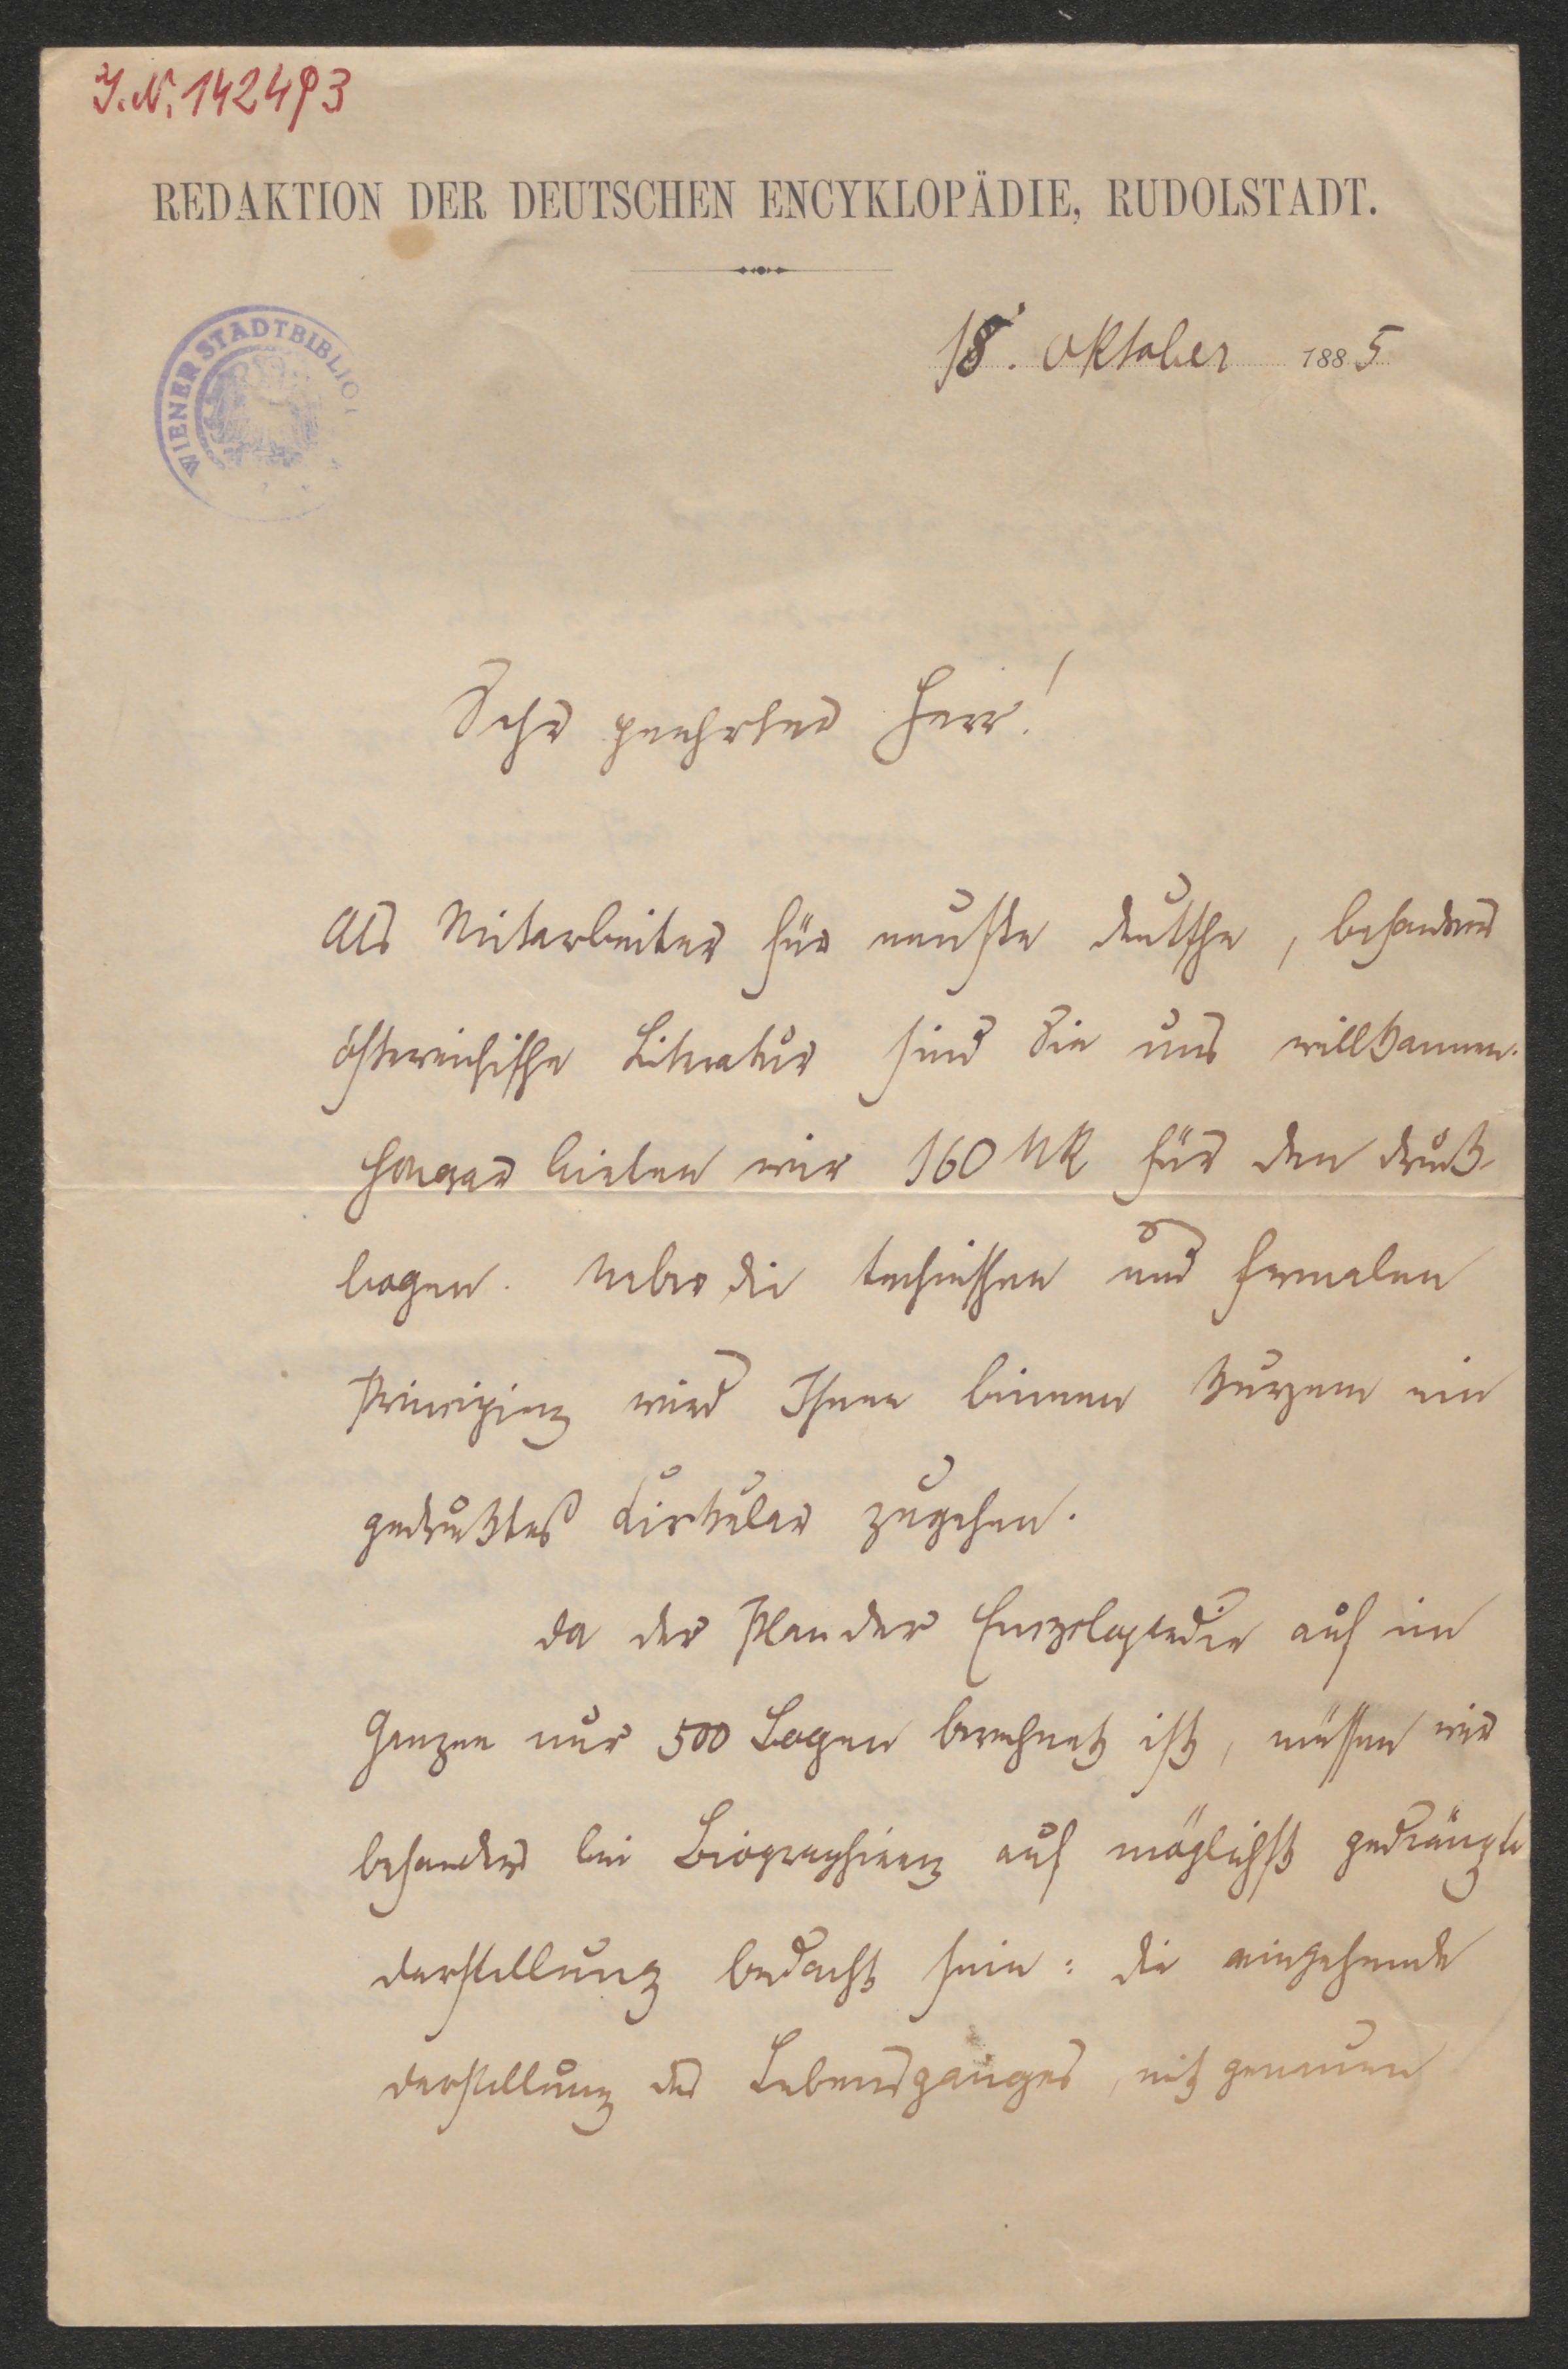 J.N. 142493
REDAKTION DER DEUTSCHEN ENCYKLOPÄDIE, RUDOLSTADT.
18. Oktober 1885
WIENER STADTBIBLIOT
Sehr geehrter Herr!
Als Mitarbeiter für neuste deutsche, besonders
östereichische Literatur sind Sie uns willkommen.
Honorar bieten wir 160 Mk für den Druck-
bogen. Ueber die technischen und formalen
Principien wird Ihnen binnen Kurzem ein
gedrucktes Cirkular zugehen.
Da der Plan der Encyclopädie auf im
Ganzen nur 500 Bogen berechnet ist, müssen wir
besonders bei Biographieen auf möglichst gedrängte
Darstellung bedacht sein: die eingehende
Darstellung des Lebensganges, mit genauen